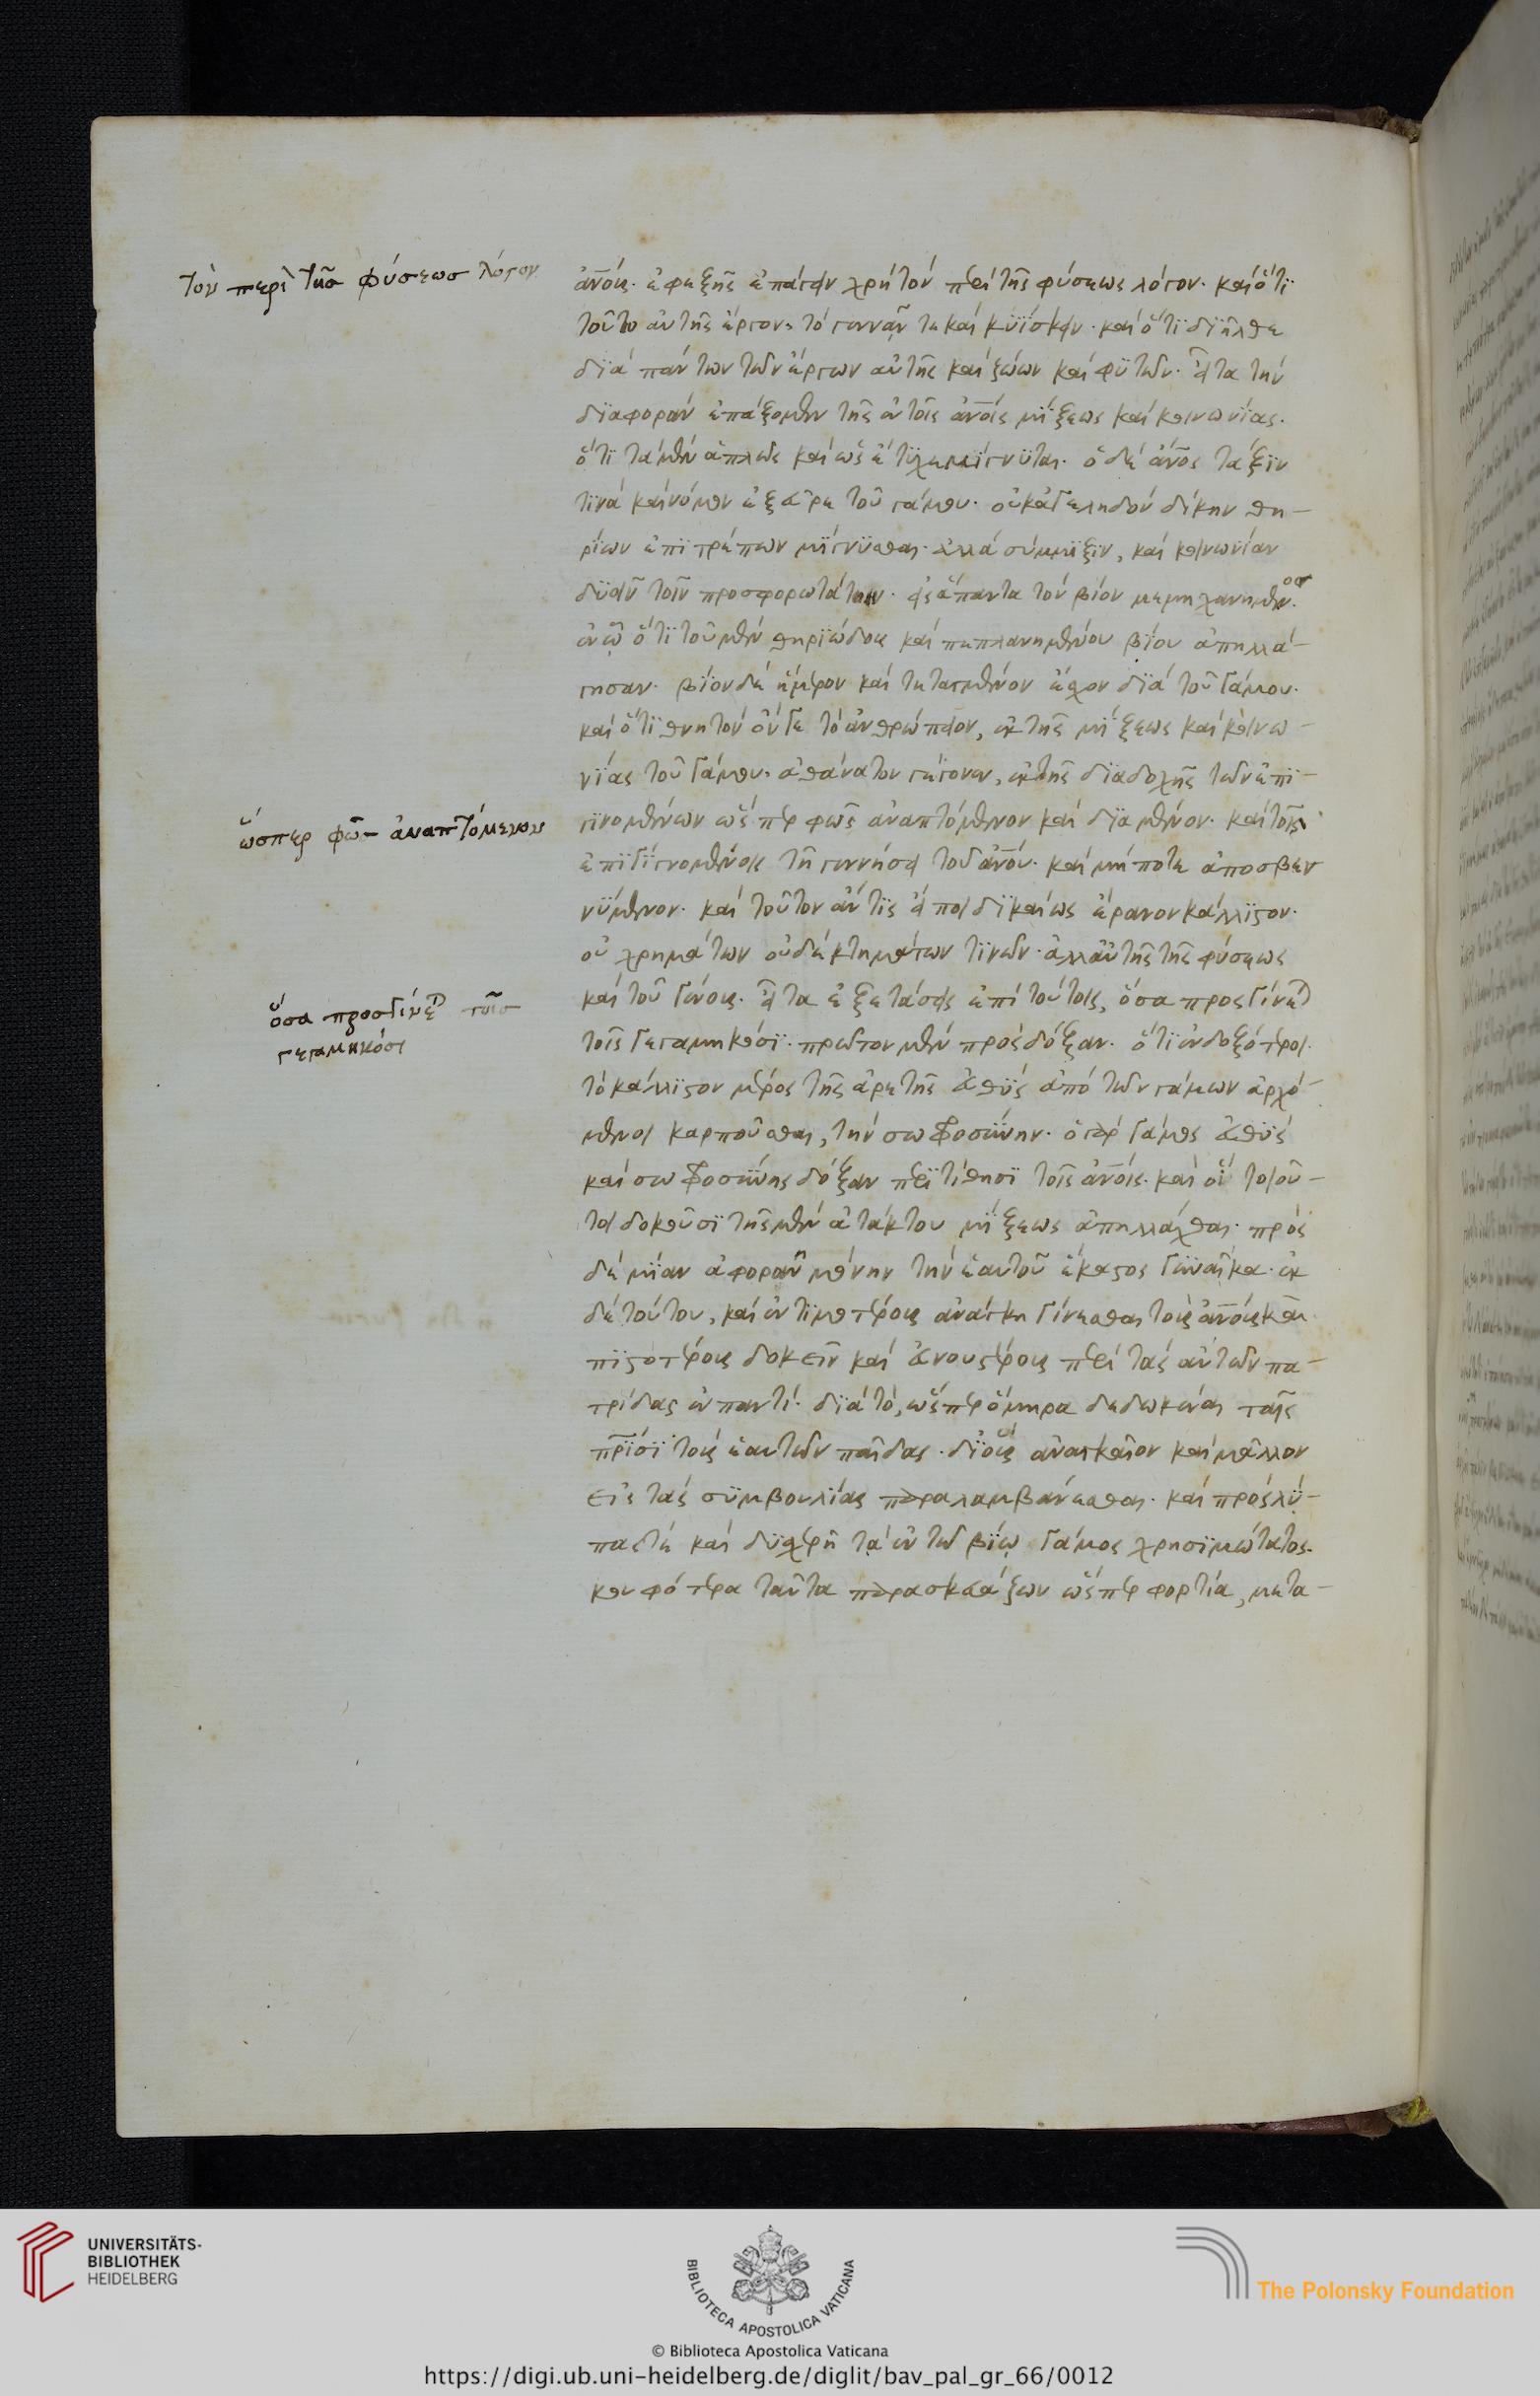 τὸν περὶ τῆσ φύσεωσ λόγον
ἀνοις. ἐφεξῆς ἐπάγειν χρὴ τὸν περὶ τῆς φύσεως λόγον. καὶ ὅτι
τοῦτο αὐτῆς ἔργον, τὸ γεννᾶν τε καὶ κυΐσκειν. καὶ ὅτι διῆλθε
διὰ πάντων τῶν ἔργων αὐτῆς καὶ ζώων καὶ φυτῶν. εἶτα τὴν
διαφορὰν ἐπάξομεν τῆς ἐν τοῖς ἀνοις μίξεως καὶ κοινωνίας.
ὅτι τὰ μὲν ἁπλῶς καὶ ὡς ἔτυχε μίγνυται. ὁ δὲ ἄνος τάξιν
τινὰ καὶ νόμον ἐξεῦρε τοῦ γάμου. οὐκ ἀγεληδὸν δίκην θη-
ρίων ἐπιτρέπων μίγνυσθαι. ἀλλὰ σύμμιξιν, καὶ κοινωνίαν
δυεῖν τοῖν προσφορωτάτοιν. εἰς ἅπαντα τὸν βίον μεμηχανημένος.
ἐν ᾧ ὅτι τοῦ μὲν θηριώδους καὶ πεπλανημένου βίου ἀπηλλά-
γησαν. βίον δὲ ἥμερον καὶ τεταγμένον ἔσχον διὰ τοῦ γάμου.
καὶ ὅτι θνητὸν ὄν γε τὸ ἀνθρώπειον, ἐκ τῆς μίξεως καὶ κοινω-
νίας τοῦ γάμου, ἀθάνατον γέγονεν, ἐκ τῆς διαδοχῆς τῶν ἐπι-
ὥσπερ φῶσ ἀναπτόμενον
γινομένων ὥσπερ φῶς ἀναπτόμενον καὶ διαμένον. καὶ τοῖς
ἐπιγιγνομένοις τῇ γεννήσει τοῦ ἀνου. καὶ μήποτε ἀποσβεν
νύμενον. καὶ τοῦτον ἄν τις εἴποι δικαίως ἔρανον κάλλιστον.
οὐ χρημάτων οὐδὲ κτημάτων τινῶν. ἀλλ' αὐτῆς τῆς φύσεως
ὅσα προσγίνεται τοῖσ
γεγαμηκόσι
καὶ τοῦ γένους. εἶτα ἐξετάσεις ἐπὶ τούτοις, ὅσα προσγίνεται
τοῖς γεγαμηκόσι. πρῶτον μὲν πρὸς δόξαν. ὅτι ἐνδοξότεροι.
τὸ κάλλιστον μέρος τῆς ἀρετῆς εὐθὺς ἀπὸ τῶν γάμων ἀρχό-
μενοι καρποῦσθαι, τὴν σωφροσύνην. ὁ γὰρ γάμος εὐθὺς
καὶ σωφροσύνης δόξαν περιτίθησι τοῖς ἀνοις. καὶ οἱ τοιοῦ-
τοι δοκοῦσι τῆς μὲν ἀτάκτου μίξεως ἀπηλλάχθαι. πρὸς
δὲ μίαν ἀφορᾶν μόνην τὴν ἑαυτοῦ ἕκαστος γυναῖκα. ἐκ
δὲ τούτου, καὶ ἐντιμοτέρους ἀνάγκη γίνεσθαι τοὺς ἀνους καὶ
πιστοτέρους δοκεῖν καὶ εὐνουστέρους περὶ τὰς αὑτῶν πα-
τρίδας ἐν παντί. διὰ τὸ, ὥσπερ ὅμηρα δεδωκέναι ταῖς
πρίσι τοὺς ἑαυτῶν παῖδας. δι' οὓς ἀναγκαῖον καὶ μᾶλλον
εἰς τὰς συμβουλίας παραλαμβάνεσθαι. καὶ πρὸς λύ-
πας τὲ καὶ δυσχερῆ τὰ ἐν τῷ βίῳ γάμος χρησιμώτατος.
κουφότερα ταῦτα παρασκευάζων ὥσπερ φορτία, μετα-
UNIVERSITÄTS-
BIBLIOTHEK
HEIDELBERG
BIBLIOTECA APOSTOLICA VATICANA
© Biblioteca Apostolica Vaticana
The Polonsky Foundation
https://digi.ub.uni-heidelberg.de/diglit/bav_pal_gr_66/0012